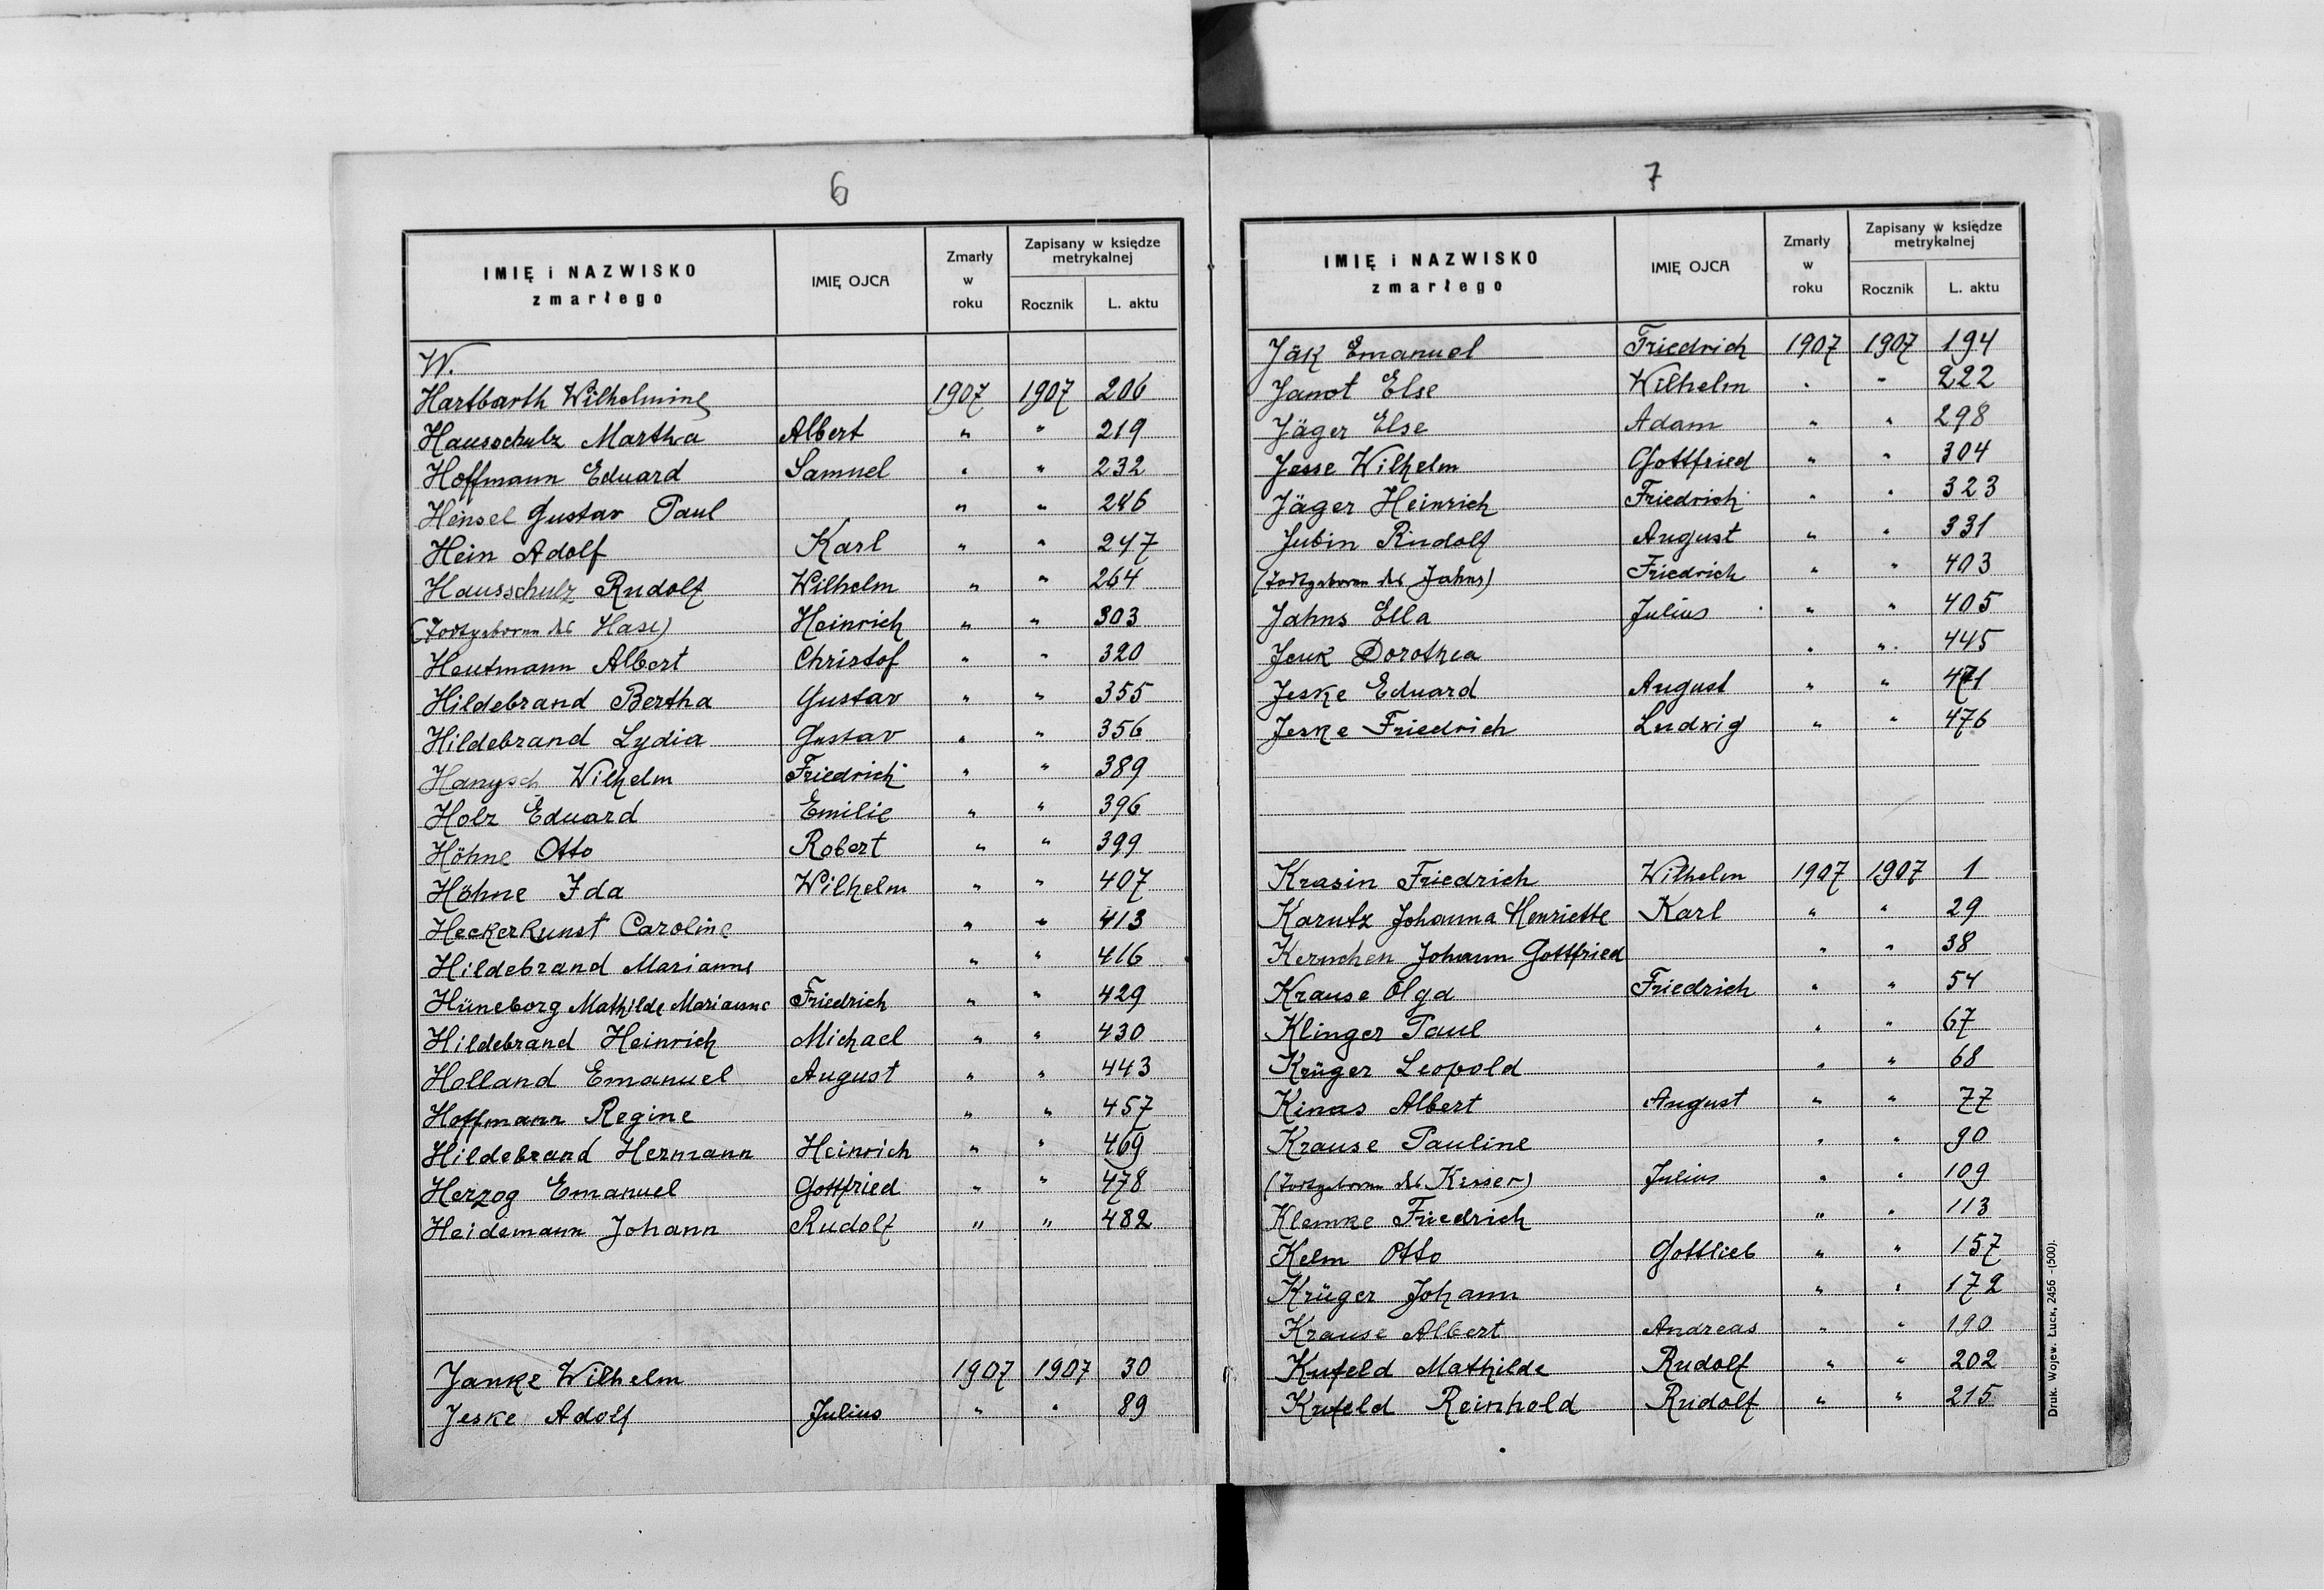 6
IMIĘ i NAZWISKO zmarłego | IMIĘ OJCA | Zmarły w roku | Zapisany w księdze metrykalnej
Rocznik | L. aktu
W.
Hartbarth Wilhelmine 1907 1907 206
Hausschulz Martha Albert " " 219
Hoffmann Eduard Samuel " " 232
Heinsel Gustav Paul " " 246
Hein Adolf Karl " " 247
Hausschulz Rudolf Wilhelm " " 264
(Todtgeboren des Hase) Heinrich " " 303
Heutmann Albert Christof " " 320
Hildebrand Bertha Gustav " " 355
Hildebrand Lydia Gustav " " 356
Hanysch Wilhelm Friedrich " " 389
Holz Eduard Emilie " " 396
Höhne Otto Robert " " 399
Höhne Ida Wilhelm " " 407
Heckerkunst Caroline " " 413
Hildebrand Marianne " " 416
Hüneborg Mathilde Marianne Friedrich " " 429
Hildebrand Heinrich Michael " " 430
Holland Emanuel August " " 443
Hoffmann Regine " " 457
Hildebrand Hermann Heinrich " " 469
Herzog Emanuel Gottfried " " 478
Heidemann Johann Rudolf " " 482
Janke Wilhelm 1907 1907 30
Jeske Adolf Julius " " 89
7
IMIĘ i NAZWISKO zmarłego | IMIĘ OJCA | Zmarły w roku | Zapisany w księdze metrykalnej
Rocznik | L. aktu
Jäk Emanuel Friedrich 1907 1907 194
Janot Else Wilhelm " " 222
Jäger Else Adam " " 298
Jesse Wilhelm Gottfried " " 304
Jäger Heinrich Friedrich " " 323
Jubin Rudolf August " " 331
(Todtgeboren des Jahns) Friedrich " " 403
Jahns Ella Julius " " 405
Jeuk Dorothea " " 445
Jeske Eduard August " " 471
Jeske Friedrich Ludwig " " 476
Krasin Friedrich Wilhelm 1907 1907 1
Karutz Johanna Henriette Karl " " 29
Kernchen Johann Gottfried " " 38
Krause Olga Friedrich " " 54
Klinger Paul " " 67
Krüger Leopold " " 68
Kinas Albert August " " 77
Krause Pauline " " 90
(Todtgeboren des Kisser) Julius " " 109
Klemke Friedrich " " 113
Helm Otto Gottlieb " " 157
Krüger Johann " " 172
Krause Albert Andreas " " 190
Kufeld Mathilde Rudolf " " 202
Kufeld Reinhold Rudolf " " 215
Druk. Wojew. Łuck, 2456 -(500).